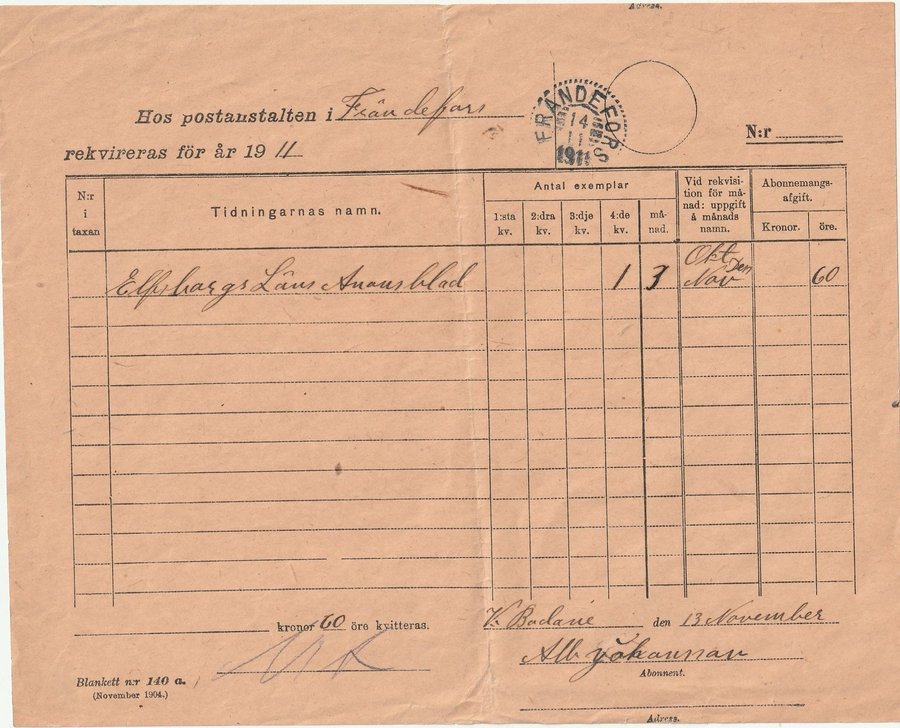 Adress.
Hos postanstalten i Frändefors
rekvireras för år 1911
FRÄNDEFORS
14
11
1911
N:r
N:r i taxan
Tidningarnas namn.
Antal exemplar
1:sta kv.
2:dra kv.
3:dje kv.
4:de kv.
må-nad.
Vid rekvisi-
tion för må-
nad: uppgift
å månads
namn.
Abonnemangs-
afgift.
Kronor.
öre.
Elfsborgs Läns Anonsblad 1 3 Okt Nov Den 60
kronor 60 öre kvitteras.
V. Bodane den 13 November
Alb Johansson
Abonnent.
Blankett n:r 140 a.
(November 1904.)
Adress.